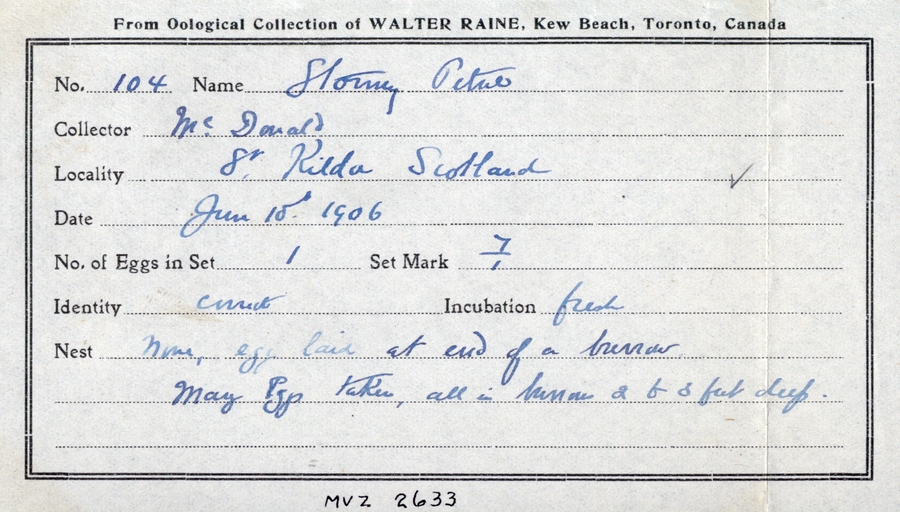 From Oological Collection of WALTER RAINE, Kew Beach, Toronto, Canada
No. 104 Name Stormy Petrel
Collector Mc Donald
Locality St. Kilda Scotland ✓
Date Jun 10 1906
No. of Eggs in Set 1 Set Mark 7/1
Identity correct Incubation fresh
Nest None, egg laid at end of a burrow
Many Eggs taken, all in burrows 2 to 3 feet deep.
MVZ 2633